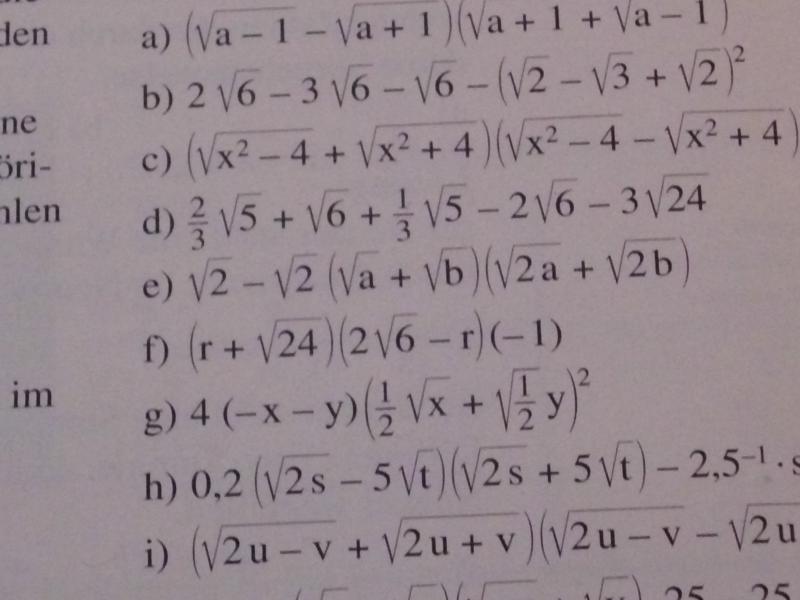 den
a) (√a − 1 − √a + 1)(√a + 1 + √a − 1)
b) 2 √6 − 3 √6 − √6 − (√2 − √3 + √2)²
ne
c) (√x² − 4 + √x² + 4)(√x² − 4 − √x² + 4)
öri-
d) 2/3 √5 + √6 + 1/3 √5 − 2√6 − 3√24
hlen
e) √2 − √2 (√a + √b)(√2a + √2b)
f) (r + √24)(2√6 − r)(−1)
im
g) 4 (−x − y)(1/2 √x + √1/2 y)²
h) 0,2 (√2s − 5√t)(√2s + 5√t) − 2,5⁻¹ · s
i) (√2u − v + √2u + v)(√2u − v − √2u
25 25